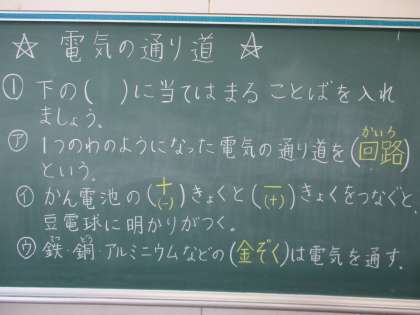 ☆ 電気の通り道 ☆
① 下の( )に当てはまることばを入れ
ましょう。
かいろ
㋐ 1つのわのようになった電気の通り道を(回路)
という。
㋑ かん電池の(+)きょくと(−)きょくをつなぐと、
(-) (+)
豆電球に明かりがつく。
㋒ 鉄・銅・アルミニウムなどの(金ぞく)は電気を通す。